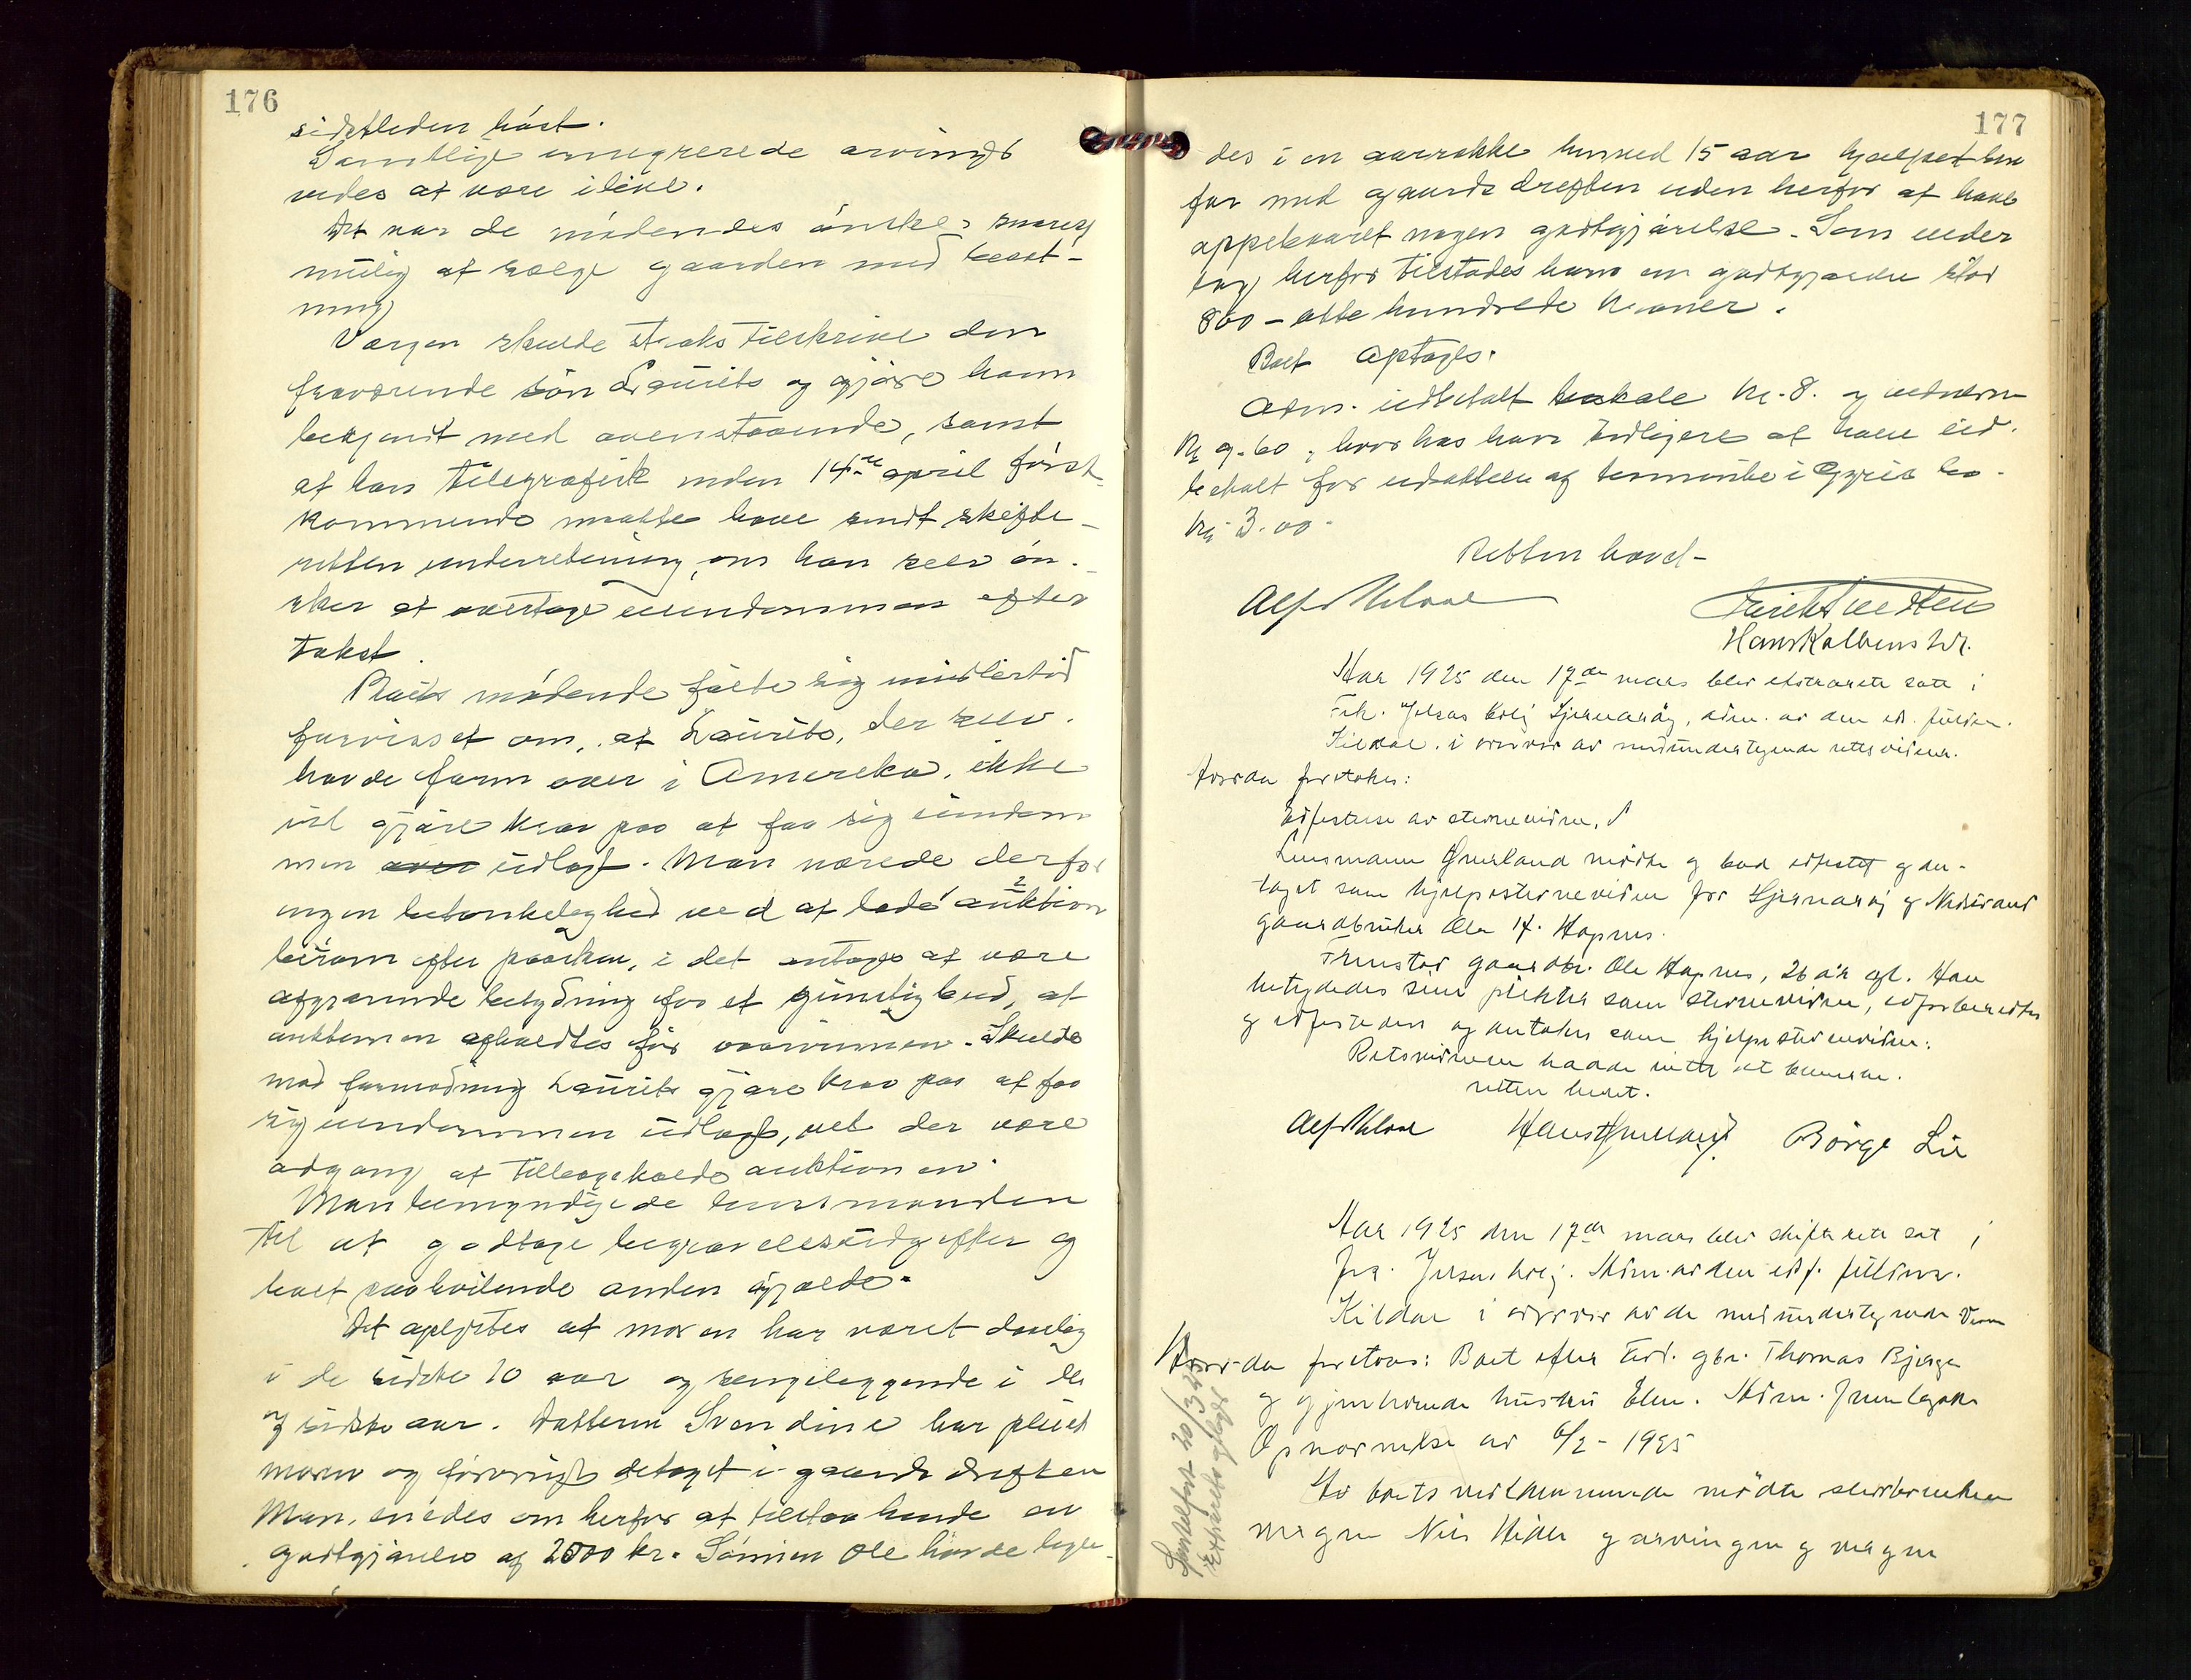 176
sidstleden höst.
Samtlige emigrerede arvinger
vides at være ilive.
Det var de mödendes önske snarest
mulig at sælge gaarden med besæt-
ning
Værgen skulde straks tilskrive den
fraværende sön Laurits og gjöre ham
bekjendt med ovenstaaende, samt
at han telegrafisk inden 14de april först-
kommende maatte have sendt skifte-
retten underretning, om han selv ön-
sker at overtage eiendommen efter
takst.
mödende fölte sig imidlertid
forvisset om, at Laurits, der selv
havde farm over i Amerika, ikke
vil gjöre krav paa at faa sig eiendom
men over udlagt. Man nærede derfor
ingen betænkelighed ved at lade auktion
beram efter paaske, i det antages at være
afgjørende betydning for et gunstig bud, at
auktionen afholdtes för vaarvinnen. Skulde
mod formodning Laurits gjöre krav paa at faa
sig eiendommen udlagt, vil der være
adgang at tilbageholde auktionen.
Man bemyndigede lensmanden
til at godtage begravelsesudgifter og
boet paahvilende anden gjæld.
Det oplystes at moren har været daarlig
i de sidste 10 aar og sengeliggende i de
sidste aar. Datteren Svendine har pleiet
moren og forövrigt detaget i gaards driften
Man enedes om herfor at tilstaa hende en
godtgjörelse af 2000 kr. Sönnen Ole havde lige-
177
des i en aarrække henved 15 aar hjælpet
far med gaards driften uden herfor at have
oppebaaret nogen godtgjörelse. Som
herfor tilstodes ham en godtgjörelse stor
800 - otte hundrede kroner.
Boet optages.
Adm. udbetalt kr. 8. og
kr 9.60, hvorhos han tidligere at have ud-
betalt for udsættelse af termine i
kr 3.00.
Retten hævet-
Alf Kildal
Hans Kolbenstvt.
Aar 1925 den 17de mars blev ekstraret sat i
Tik. Jelsas tolj Sjernaröy, adm. av den ed. fuldm.
Kildal. i overvær av medundertegnede rettsvidner.
Hvorda foretokes:
Edfestelse av stevnevidne.
Lensmann Överland mödte og bad edfestet og an-
taget som hjelpestevnevidne for Sjernaröy og Nedstrand
gaardbruker Ole H. Hapnes.
Fremstod gaardbr. Ole Hapnes, 26 år gl. Han
betydedes sine plikter som stevnevidne, edforberedtes
og edfestedes og antokes som hjelpestevnevidne.
Retsvidnene hadde intet at bemerke.
retten hevet.
Alf Kildal Hans Överland Börge Lie
Aar 1925 den 17de mars blev skifterett sat i
Kildal i overvær av de medundertegnede
Hvor da foretoas: Boet efter Fhv. gbr. Thomas Bjerge
og gjenlevende hustru Elen. Adm. fremlegges
Opnævnelse av 6/2 - 1925
Av boets vedkommende mödte
Nils og arvingen og